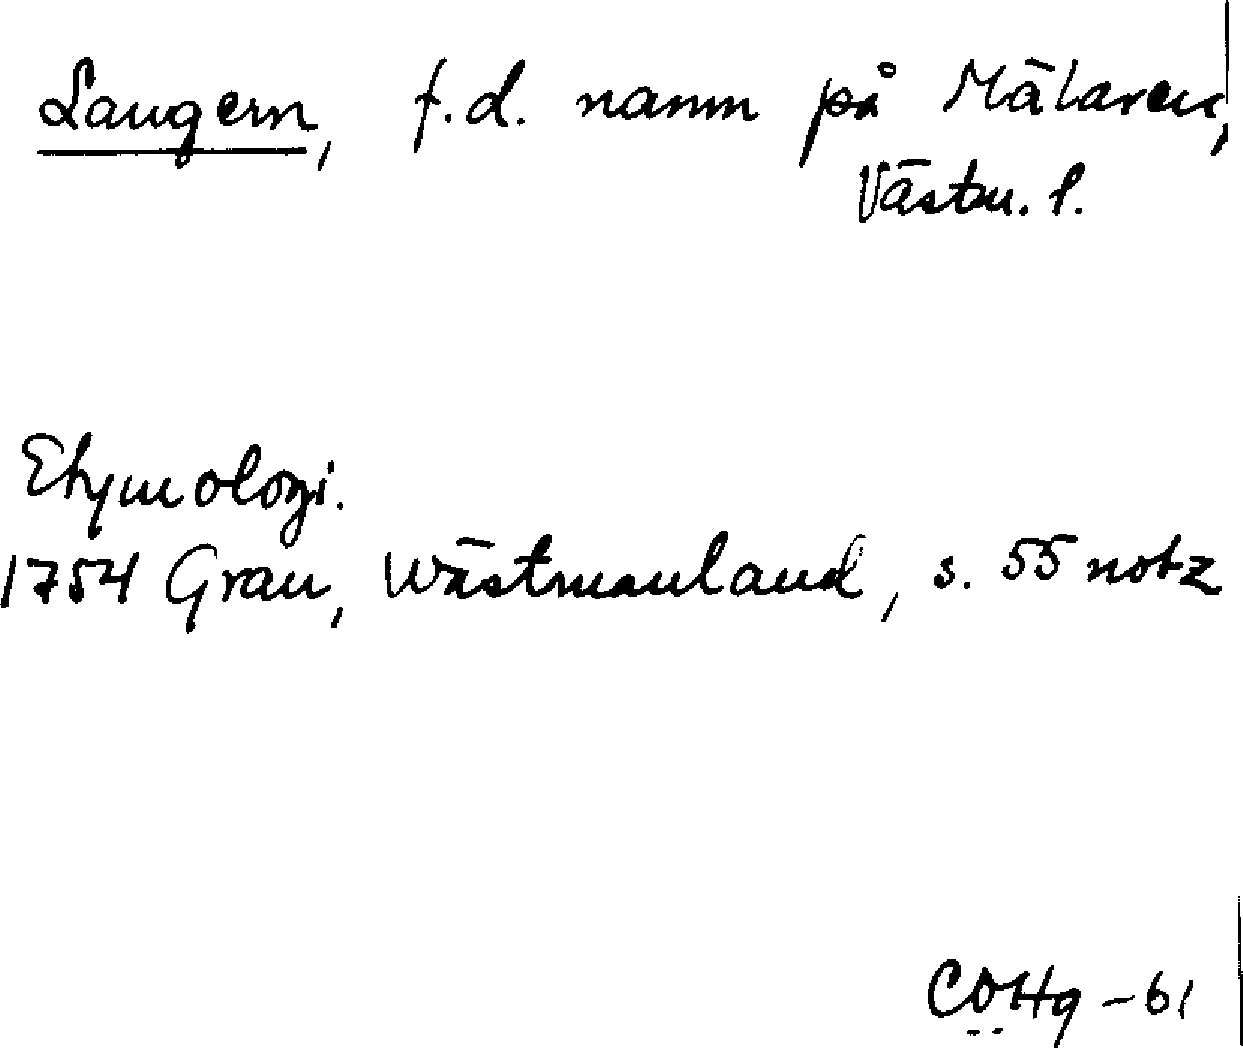 Laugern, f.d. namn på Mälaren,
Västm. l.
Etymologi.
1754 Grau, Wästmanland, s. 55 not z
COHg -61